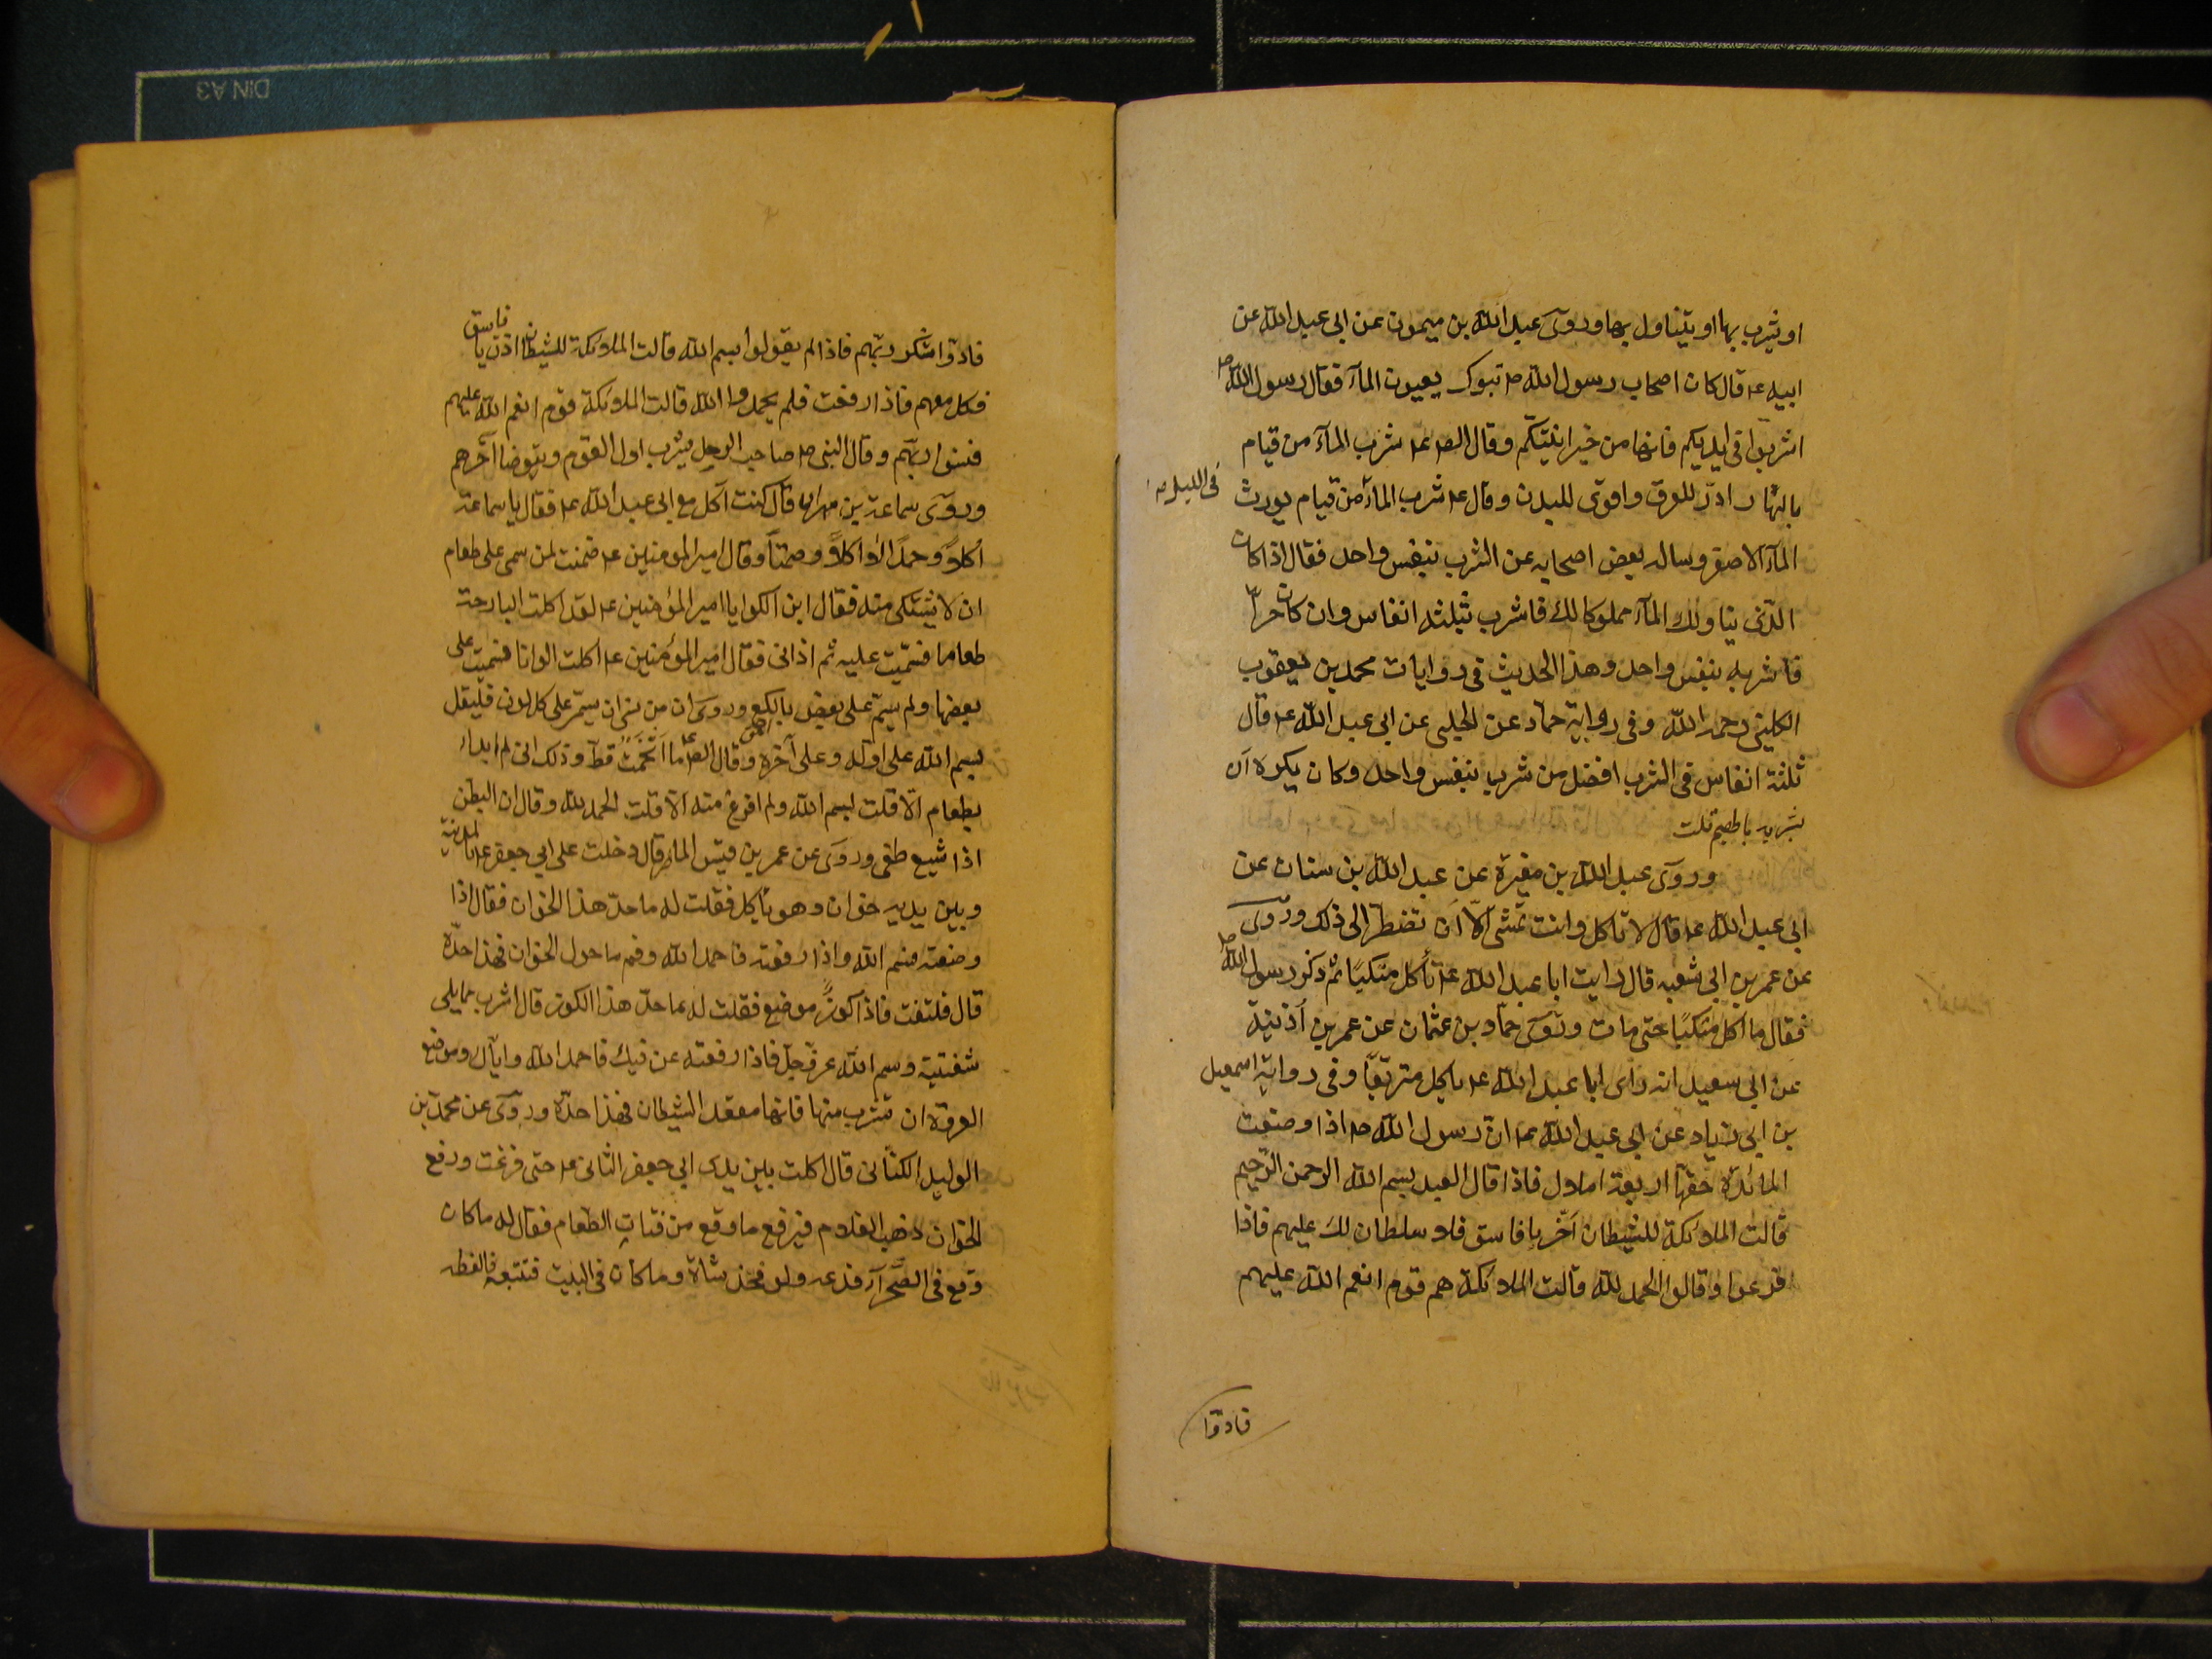 او يشرب بها او يتناول بها وروى عبد الله بن ميمون عن ابى عبد الله عن
ابيه ع قال كان اصحاب رسول الله ص تبوك يعبون المآء فقال رسول الله ص
اشربوا فى ايديكم فانها من خير انيتكم وقال الص ع شرب المآء من قيام
بالنهار ادرّ للعرق واقوى للبدن وقال ع شرب المآء من قيام يورث
فى الليل
المآء الاصفر وساله بعض اصحابه عن الشرب بنفس واحد فقال اذا كان
الذى يناولك المآء مملوكا لك فاشرب بثلثه انفاس وان كان حراً
فاشربه بنفس واحد وهذا الحديث فى روايات محمد بن يعقوب
الكلينى رحمه الله وفى رواية حماد عن الحلبى عن ابى عبد الله ع قال
ثلثة انفاس فى الشرب افضل من شرب بنفس واحد وكان يكره ان
قلت
وروى عبد الله بن مغيرة عن عبد الله بن سنان عن
ابى عبد الله ع قال لا تاكل وانت تمشى الّا ان تضطر الى ذلك وروى
عن عمر بن ابى شعبه قال رايت ابا عبد الله ع تأكل متكيًا ثم ذكر رسول الله ص
فقال ما اكل متكيًا حتى مات وروى حماد بن عثمان عن عمر بن اذنية
عن ابى سعيد انه راى ابا عبد الله ع ياكل متربعًا وفى رواية اسمعيل
بن ابى زياد عن ابى عبد الله ع ان رسول الله ص اذا وضعت
المائدة حفها اربعة املاك فاذا قال العبد بسم الله الرحمن الرحيم
قالت الملائكة للشيطان اخر يا فاسق فلا سلطان لك عليهم فاذا
فرغوا وقالوا الحمد لله قالت الملائكة هم قوم انعم الله عليهم
فادوّا
فادوّا شكر ربّهم فاذا لم يقولوا بسم الله قالت الملائكة للشيطان اذن يا فاسق
فكل معهم فاذا رفعت فلم يحمدوا الله قالت الملائكة قوم انعم الله عليهم
فنسوا ربّهم وقال النبى ص صاحب الرحل يشرب اول القوم ويتوضا آخرهم
وروى سماعة بن مهران قال كنت آكل مع ابى عبد الله ع فقال يا سماعة
اكلاً وحمداً لا اكلاً وصمتاً وقال امير المومنين ع ضمنت لمن سمى على طعام
ان لا يشتكى منه فقال ابن الكوا يا امير المؤمنين ع لقد اكلت البارحة
طعاما فسمّيت عليه ثم اذانى فقال امير المؤمنين ع اكلت الوانا فسميت على
بعضها ولم تسم على بعض يا لكع وروى ان من نسى ان يسمّى على كل لون فليقل
بسم الله على اوله وعلى آخره وقال الص ع ما اتّخمت قطّ وذلك انى لم ابداء
بطعام الّا قلت بسم الله ولم افرغ منه الّا قلت الحمد لله وقال ان البطن
اذا شبع طغى وروى عن عمر بن قيس الماصر قال دخلت على ابى جعفر ع بالمدينة
وبين يديه خوان وهو يأكل فقلت له ما حدّ هذا الخوان فقال اذا
وضعته فسم الله واذا رفعته فاحمد الله وقم ما حول الخوان فهذا حدّه
قال فلتفت فاذا كوز موضوع فقلت له ما حدّ هذا الكوز قال اشرب مما يلى
شفتيه وسم الله عز وجل فاذا رفعته عن فيك فاحمد الله واياك وموضع
العروة ان تشرب منها فانها مقعد الشيطان فهذا حدّه وروى عن محمد بن
الوليد الكنانى قال اكلت بين يدى ابى جعفر الثانى ع حتى فرغت ورفع
الخوان ذهب الغلام فيرفع ما وقع من فتات الطعام فقال له ما كان
وقع فى الصّحرآء فدعه ولو فخذ شاة وما كان فى البيت فتتبعه فالقطه